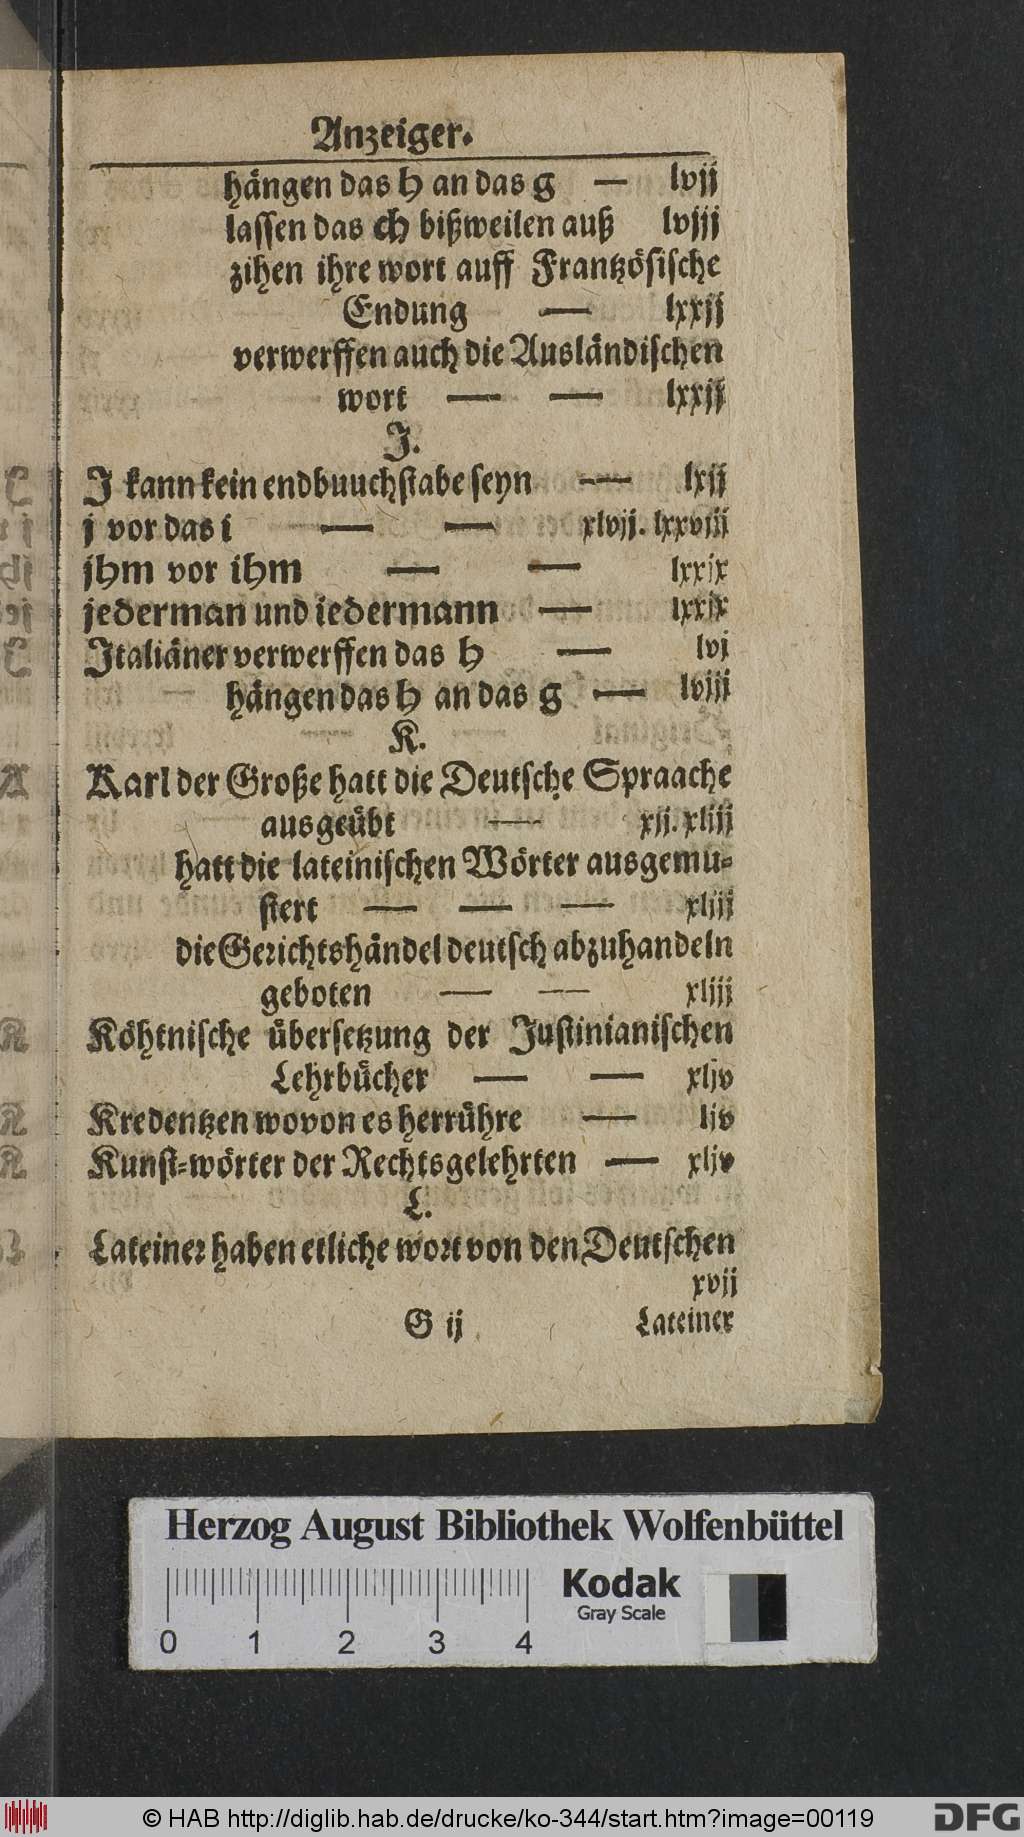 Anzeiger.
hängen das h an das g — lvjj
lassen das ch bißweilen auß lvjjj
zihen ihre wort auff Frantzösische
Endung — lxxjj
verwerffen auch die Ausländischen
wort — — lxxjj
J.
J kann kein endbuuchstabe seyn — lxjj
j vor das i — — xlvjj. lxxviii
jhm vor ihm — — lxxjx
jederman und iedermann — lxxjx
Jtaliäner verwerffen das h — lvj
hängen das h an das g — lvjjj
K.
Karl der Große hatt die Deutsche Spraache
ausgeübt — xjj. xljjj
hatt die lateinischen Wörter ausgemu-
stert — — — xljjj
die Gerichtshändel deutsch abzuhandeln
geboten — — xljjj
Köhtnische übersetzung der Justinianischen
Lehrbücher — — xljv
Kredentzen wovon es herrühre — ljv
Kunst-wörter der Rechtsgelehrten — xljv
L.
Lateiner haben etliche wort von den Deutschen
xvjj
G ij Lateiner
Herzog August Bibliothek Wolfenbüttel
Kodak
Gray Scale
0 1 2 3 4
© HAB http://diglib.hab.de/drucke/ko-344/start.htm?image=00119
DFG